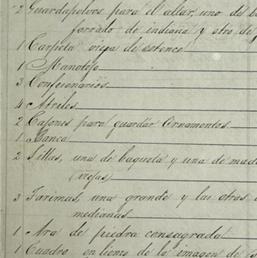 2 Guardapolvos para el altar, uno del
forrado de indiana y otro de
1 Carpeta vieja de
1 Manotejo
3 Confesionarios
4 Atriles
2 Cajones para guardar Ornamentos
1 Banca
2 Sillas, una de baqueta y una de
viejas
3 Tarimas, una grande y las otras
medianas
1 Ara de piedra consagrada
1 Cuadro en lienzo de la imagen de